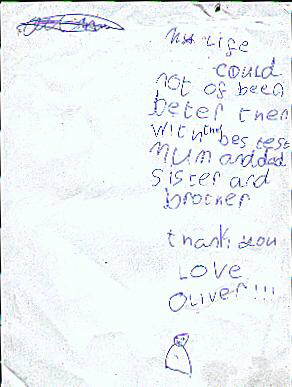 My Life
could
not of been
beter then
with the bestest
mum and dad
sister and
brother
thank you
LOVE
Oliver!!!